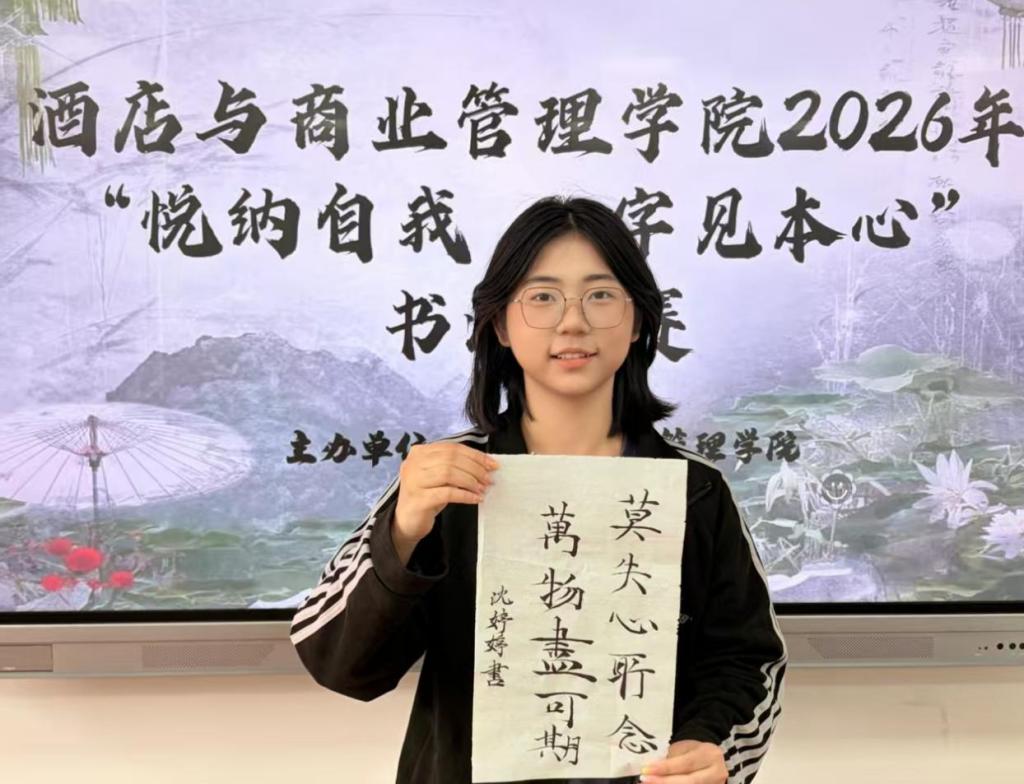 酒店与商业管理学院2026年
“悦纳自我 字见本心”
书
主办单位 管理学院
莫失心所念
萬物盡可期
沈婷婷書